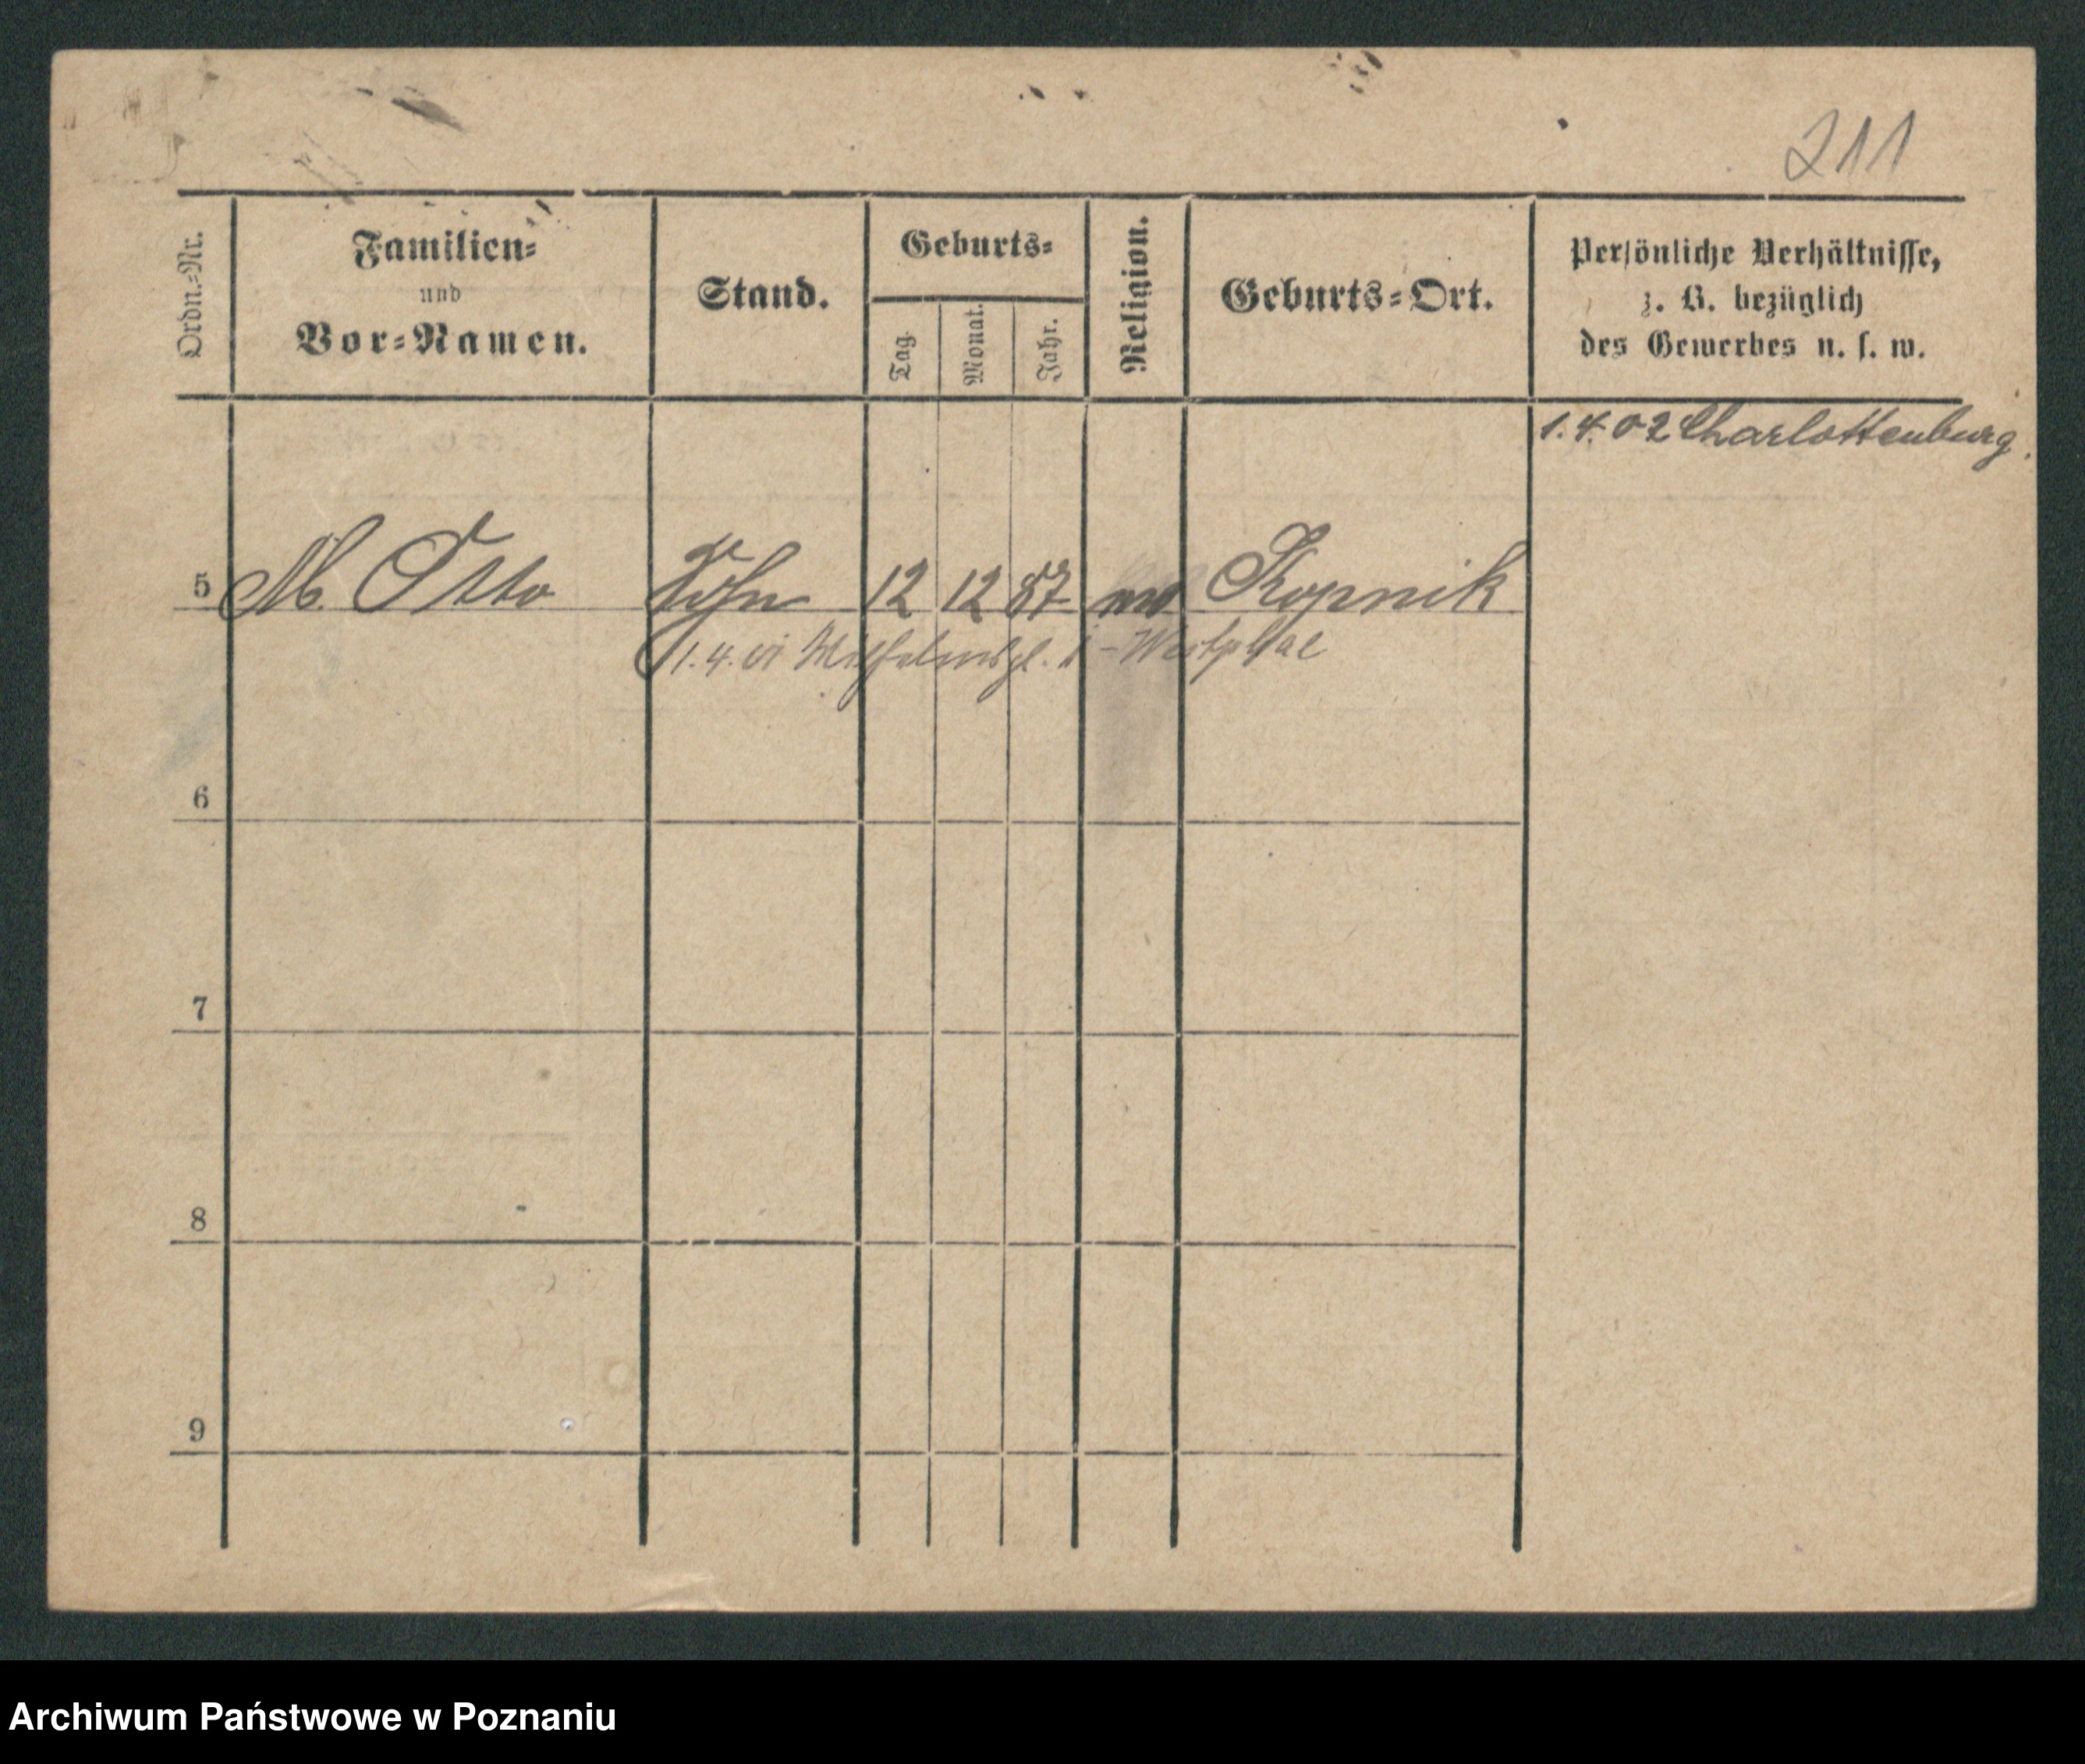 211
Ordn.=Nr.
Familien=
und
Vor=Namen.
Stand.
Geburts=
Tag.
Monat.
Jahr.
Religion.
Geburts=Ort.
Persönliche Verhältnisse,
z. B. bezüglich
des Gewerbes u. s. w.
1.4.02 Charlottenburg.
5 M. Otto Sohn 12 12 87 Kopnik
1.4.01 Wilhelmspl. - Westphal
6
7
8
9
Archiwum Państwowe w Poznaniu